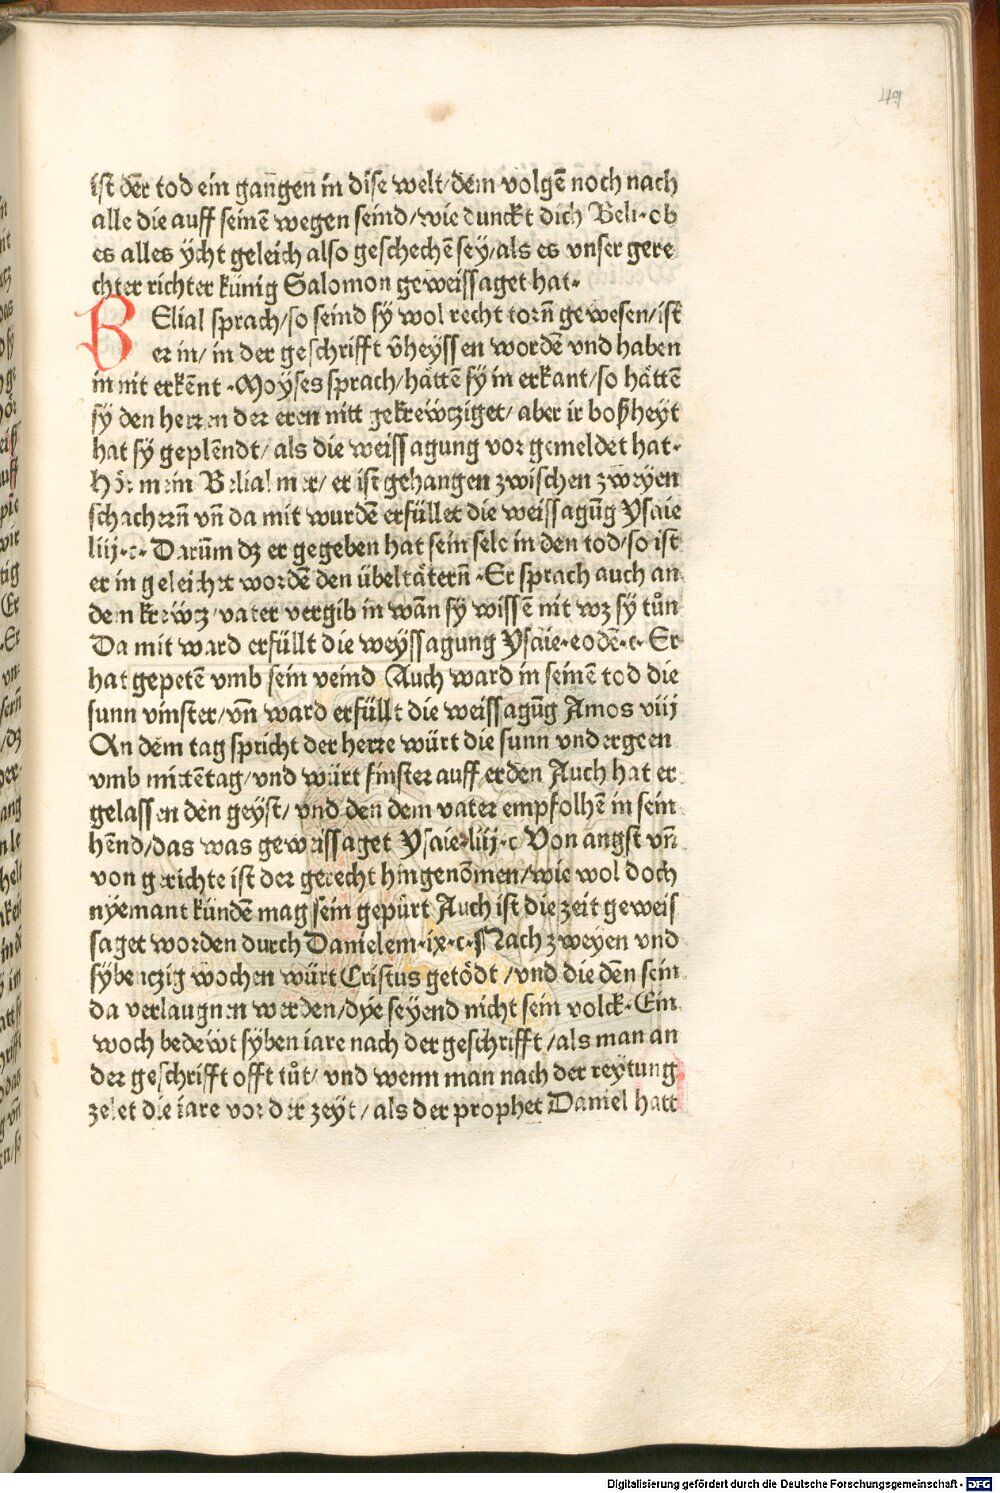 49
ist der̄ tod ein gan̄gen in dise welt/dem̄ volgē noch nach
alle die auff seinē wegen seind/wie dunckt dich Beli·ob
es alles ycht geleich also geschechē sey/als es vnser gere
chter richter künig Salomon geweissaget hat·
BElial sprach/so seind sy wol recht torn̄ gewesen/ist
er in/in der geschrifft v̄heyssen wordē vnd haben
in nit erkēnt·Moyses sprach/hättē sy in erkant/so hättē
sy den herren der eren nitt gekrewtziget/aber ir boßheyt
hat sy geplēndt/als die weissagung vor gemeldet hat·
Hör mein Belial mer/er ist gehangen zwischen zweyen
schachern̄ vn̄ da mit wurdē erfüllet die weissagūg Ysaie
liij·c·Darūm dz er gegeben hat sein sele in den tod/so ist
er in geleichet wordē den übeltätern̄·Er sprach auch an
dem krewtz/vater vergib in wān sy wissē nit wz sy tůn
Da mit ward erfüllt die weyssagung Ysaie·eodē·c·Er
hat gepetē vmb sein veind Auch ward in seinē tod die
sunn vinster/vn̄ ward erfüllt die weissagūg Amos viij
An dem̄ tag spricht der herre würt die sunn vndergeen
vmb mittētag/vnd würt finster auff erden Auch hat er
gelassen den geyst/vnd den dem vater empfolhē in sein
hēnd/das was geweissaget Ysaie·liij·c Von angst vn̄
von gerichte ist der gerecht hingenōmen/wie wol doch
nyemant kündē mag sein gepürt Auch ist die zeit geweis
saget worden durch Danielem·ix·c·Nach zweyen vnd
sybentzig wochen würt Cristus getödt/vnd die dēn sein
da verlaugnen werden/dye seyend nicht sein volck·Ein
woch bedewt syben iare nach der geschrifft/als man an
der geschrifft offt tůt/vnd wenn man nach der reytung
zelet die iare vor der zeyt/als der prophet Daniel hatt
Digitalisierung gefördert durch die Deutsche Forschungsgemeinschaft - DFG